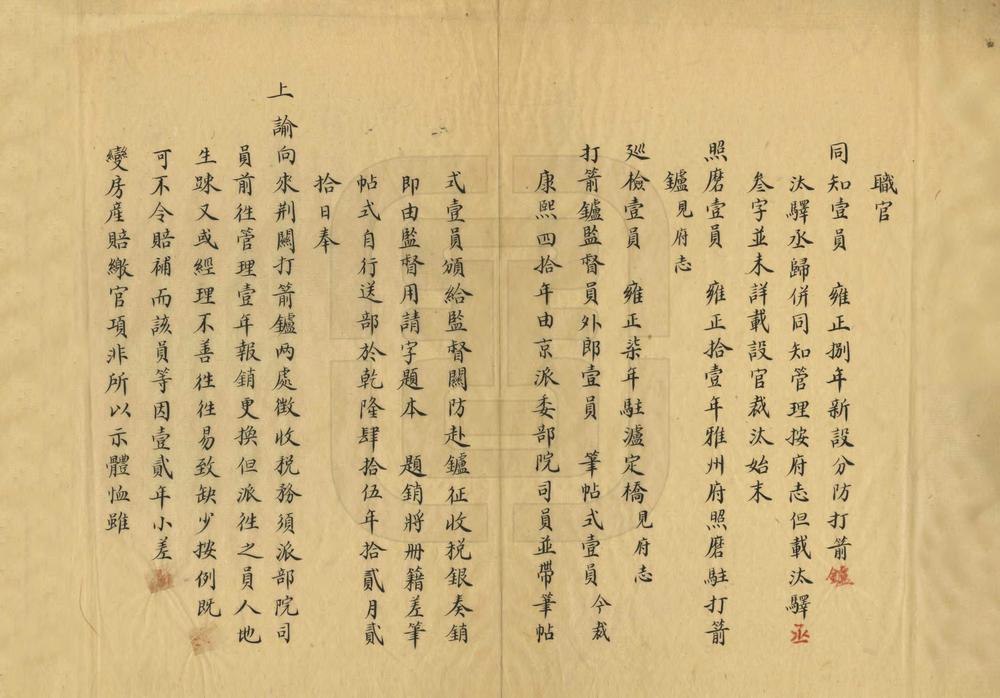 職官
同知壹員　雍正捌年新設分防打箭鑪
汰驛丞歸併同知管理按府志但載汰驛丞
叁字並未詳載設官裁汰始末
照磨壹員　雍正拾壹年雅州府照磨駐打箭
鑪見府志
廵檢壹員　雍正柒年駐瀘定橋見府志
打箭鑪監督員外郎壹員　筆帖式壹員　今裁
康熙四拾年由京派委部院司員並帶筆帖
式壹員頒給監督關防赴鑪征收税銀奏銷
即由監督用請字題本　題銷將册籍差筆
帖式自行送部於乾隆肆拾伍年拾貳月貳
拾日奉
上諭向來荆關打箭鑪兩處徵收税務須派部院司
員前徃管理壹年報銷更換但派徃之員人地
生踈又或經理不善徃徃易致缺少按例既
可不令賠補而該員等因壹貳年小差
變房産賠繳官項非所以示體恤雖